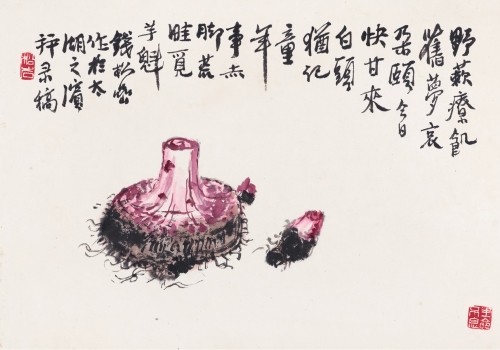 野蔌療飢
舊夢哀
朵頤今日
快甘來
白頭
猶記
童
年
事赤
脚荒
畦覓
芋魁
錢松喦
作於太
湖之濱
并录稿